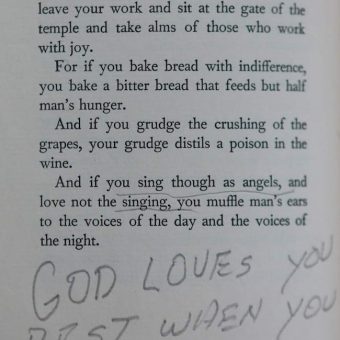 leave your work and sit at the gate of the
temple and take alms of those who work
with joy.
For if you bake bread with indifference,
you bake a bitter bread that feeds but half
man's hunger.
And if you grudge the crushing of the
grapes, your grudge distils a poison in the
wine.
And if you sing though as angels, and
love not the singing, you muffle man's ears
to the voices of the day and the voices of
the night.
GOD LOVES YOU
BEST WHEN YOU